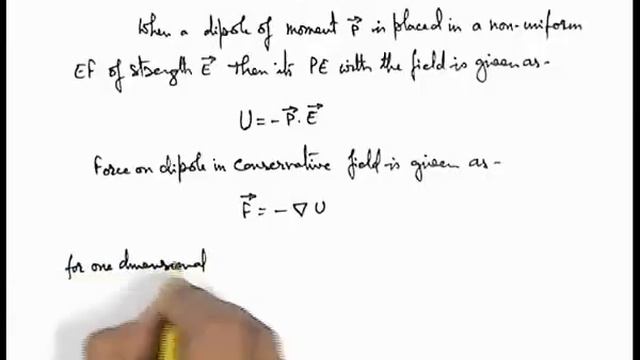 When a dipole of moment P⃗ is placed in a non-uniform
EF of strength E⃗ then its PE with the field is given as -
U = - P⃗ . E⃗
Force on dipole in conservative field is given as -
F⃗ = - ∇ U
for one dimensional